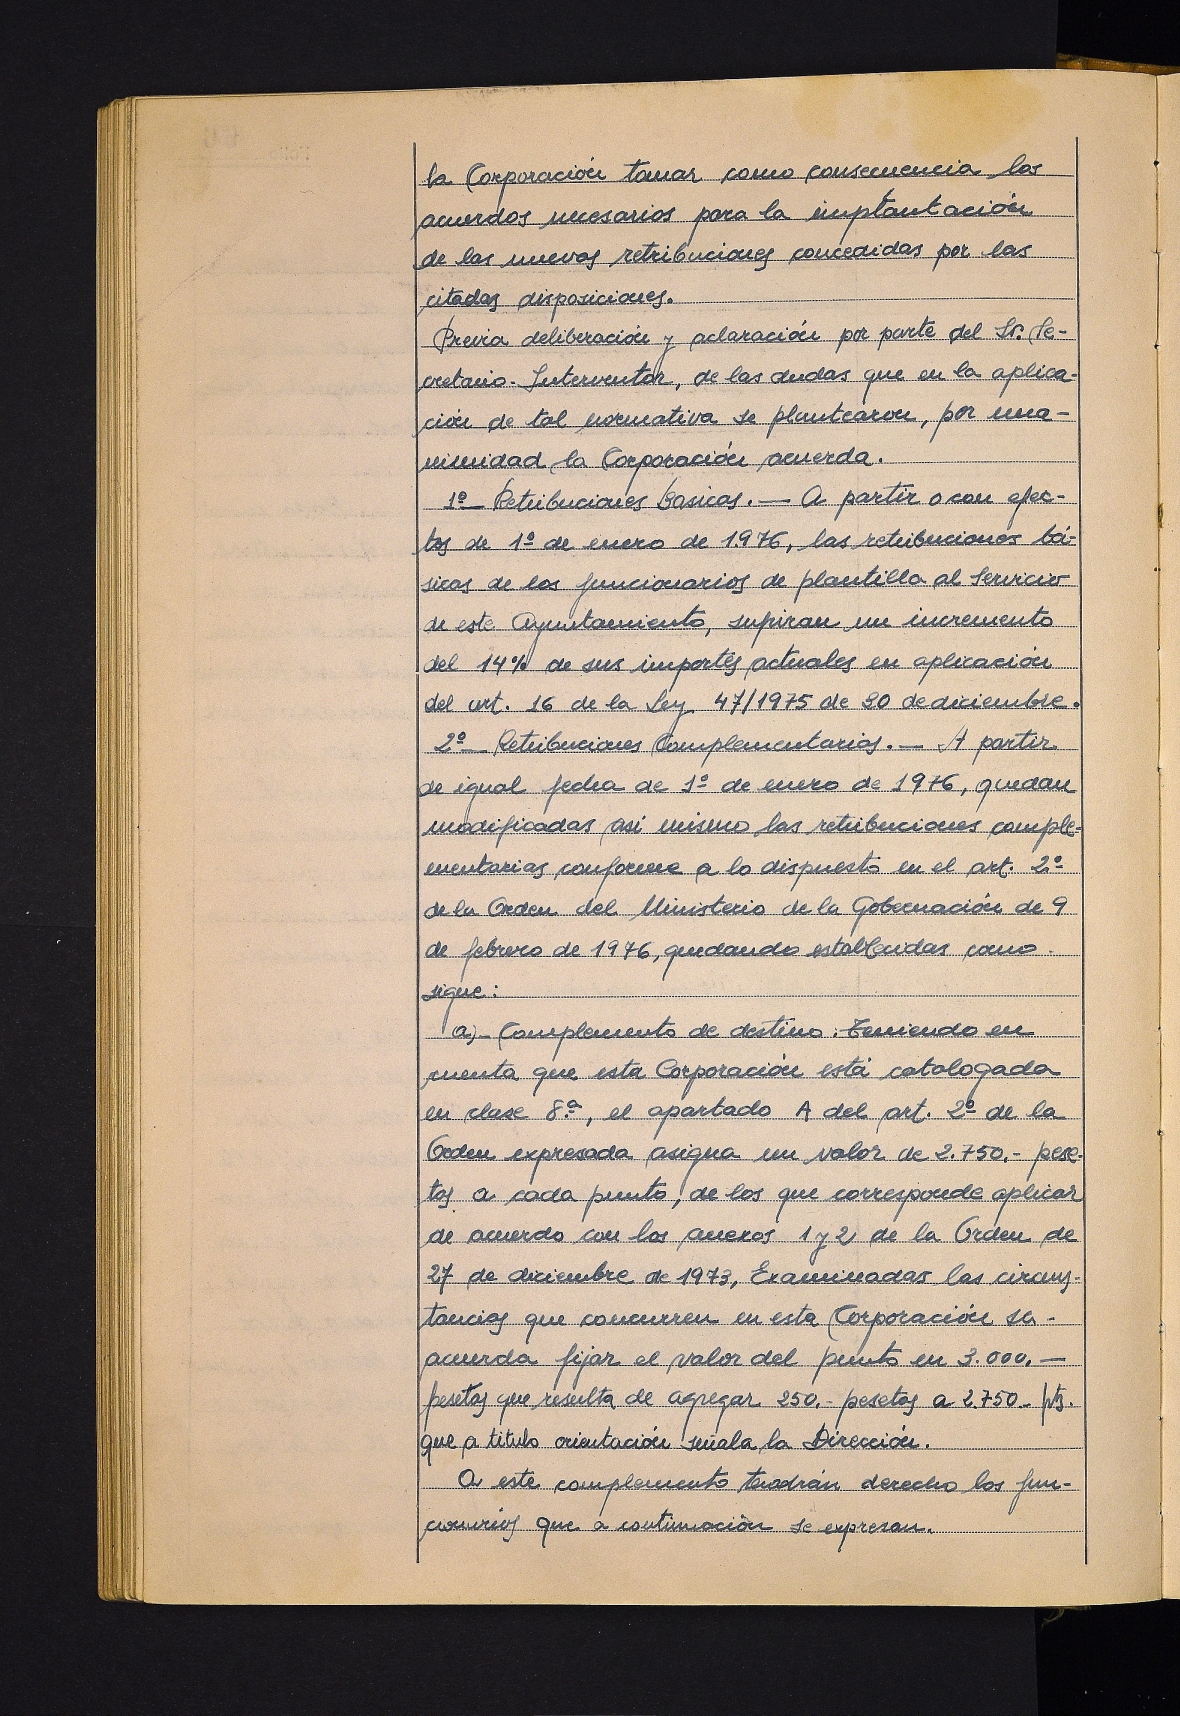 la Corporación tomar como consecuencia los
acuerdos necesarios para la implantación
de las nuevas retribuciones concedidas por las
citadas disposiciones.
Previa deliberación y aclaración por parte del Sr. Se-
cretario-Interventor, de las dudas que en la aplica-
ción de tal normativa se plantearon, por una-
nimidad la Corporación acuerda.
1º- Retribuciones Basicas.- A partir o con efec-
tos de 1º de enero de 1976, las retribuciones bá-
sicas de los funcionarios de plantilla al Servicio
de este Ayuntamiento, sufiran un incremento
del 14% de sus importes actuales en aplicación
del art. 16 de la Ley 47/1975 de 30 de diciembre.
2º- Retribuciones Complementarias.- A partir
de igual fecha de 1º de enero de 1976, quedan
modificadas asi mismo las retribuciones comple-
mentarias conforme a lo dispuesto en el art. 2º
de la Orden del Ministerio de la Gobernación de 9
de febrero de 1976, quedando establecidas como
sigue:
a)- Complemento de destino. Teniendo en
cuenta que esta Corporación está catalogada
en clase 8ª, el apartado A del art. 2º de la
Orden expresada asigna un valor de 2.750.- pese-
tas a cada punto, de los que corresponde aplicar
de acuerdo con los anexos 1 y 2 de la Orden de
27 de diciembre de 1973, Examinadas las circuns-
tancias que concurren en esta Corporación se-
acuerda fijar el valor del punto en 3.000.-
pesetas que resulta de agregar 250.- pesetas a 2.750- pts.
que a titulo orientación señala la Dirección.
A este complemento tendrán derecho los fun-
cionarios que a continuación se expresan.